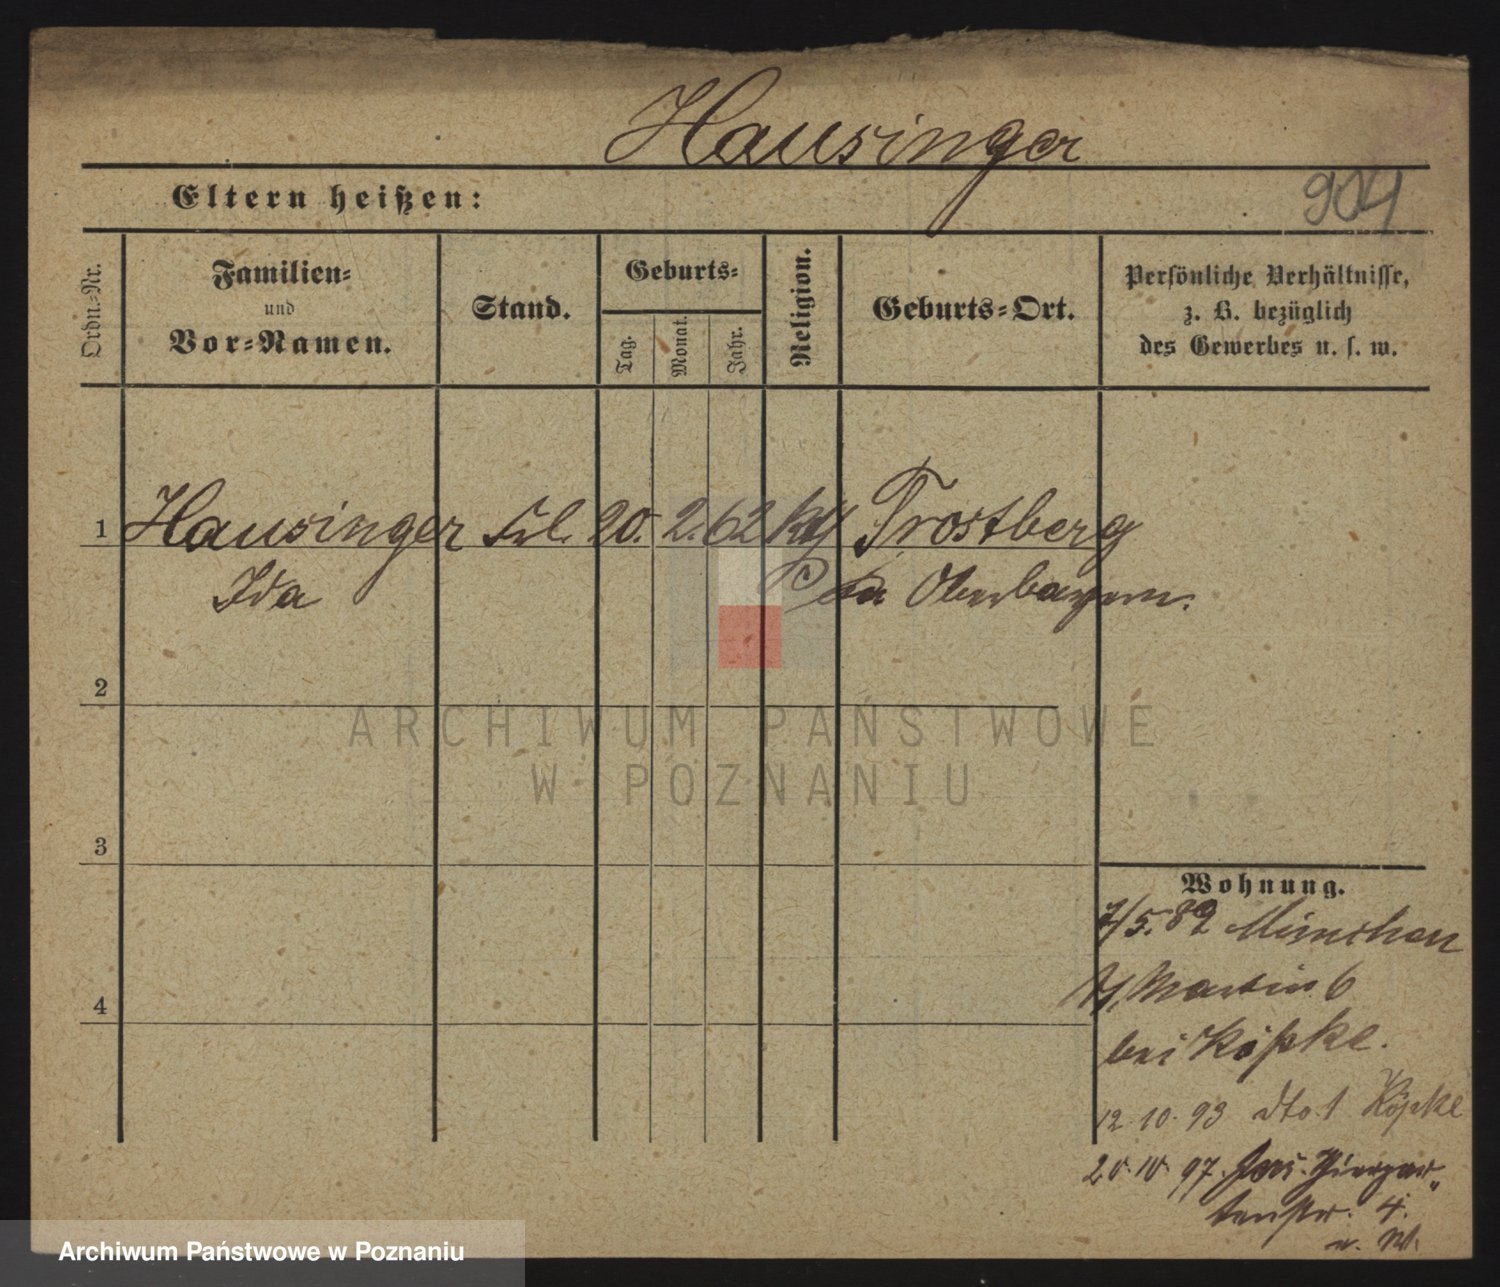 Hausinger
Eltern heißen:
904
Ordn.-Nr.
Familien-
und
Vor-Namen.
Stand.
Geburts-
Tag.
Monat.
Jahr.
Religion.
Geburts-Ort.
Persönliche Verhältnisse,
z. B. bezüglich
des Gewerbes u. s. w.
1 Hausinger Frl. 20. 2. 62 kth Trostberg
Ida Oberbayern.
2
ARCHIWUM PAŃSTWOWE
W POZNANIU
3
Wohnung.
7/5. 89 München
Martin 6
4
bei Köpke.
12. 10. 93 dto 1 Köpke
20. 10. 97. Thiergar-
tenstr. 4.
Archiwum Państwowe w Poznaniu